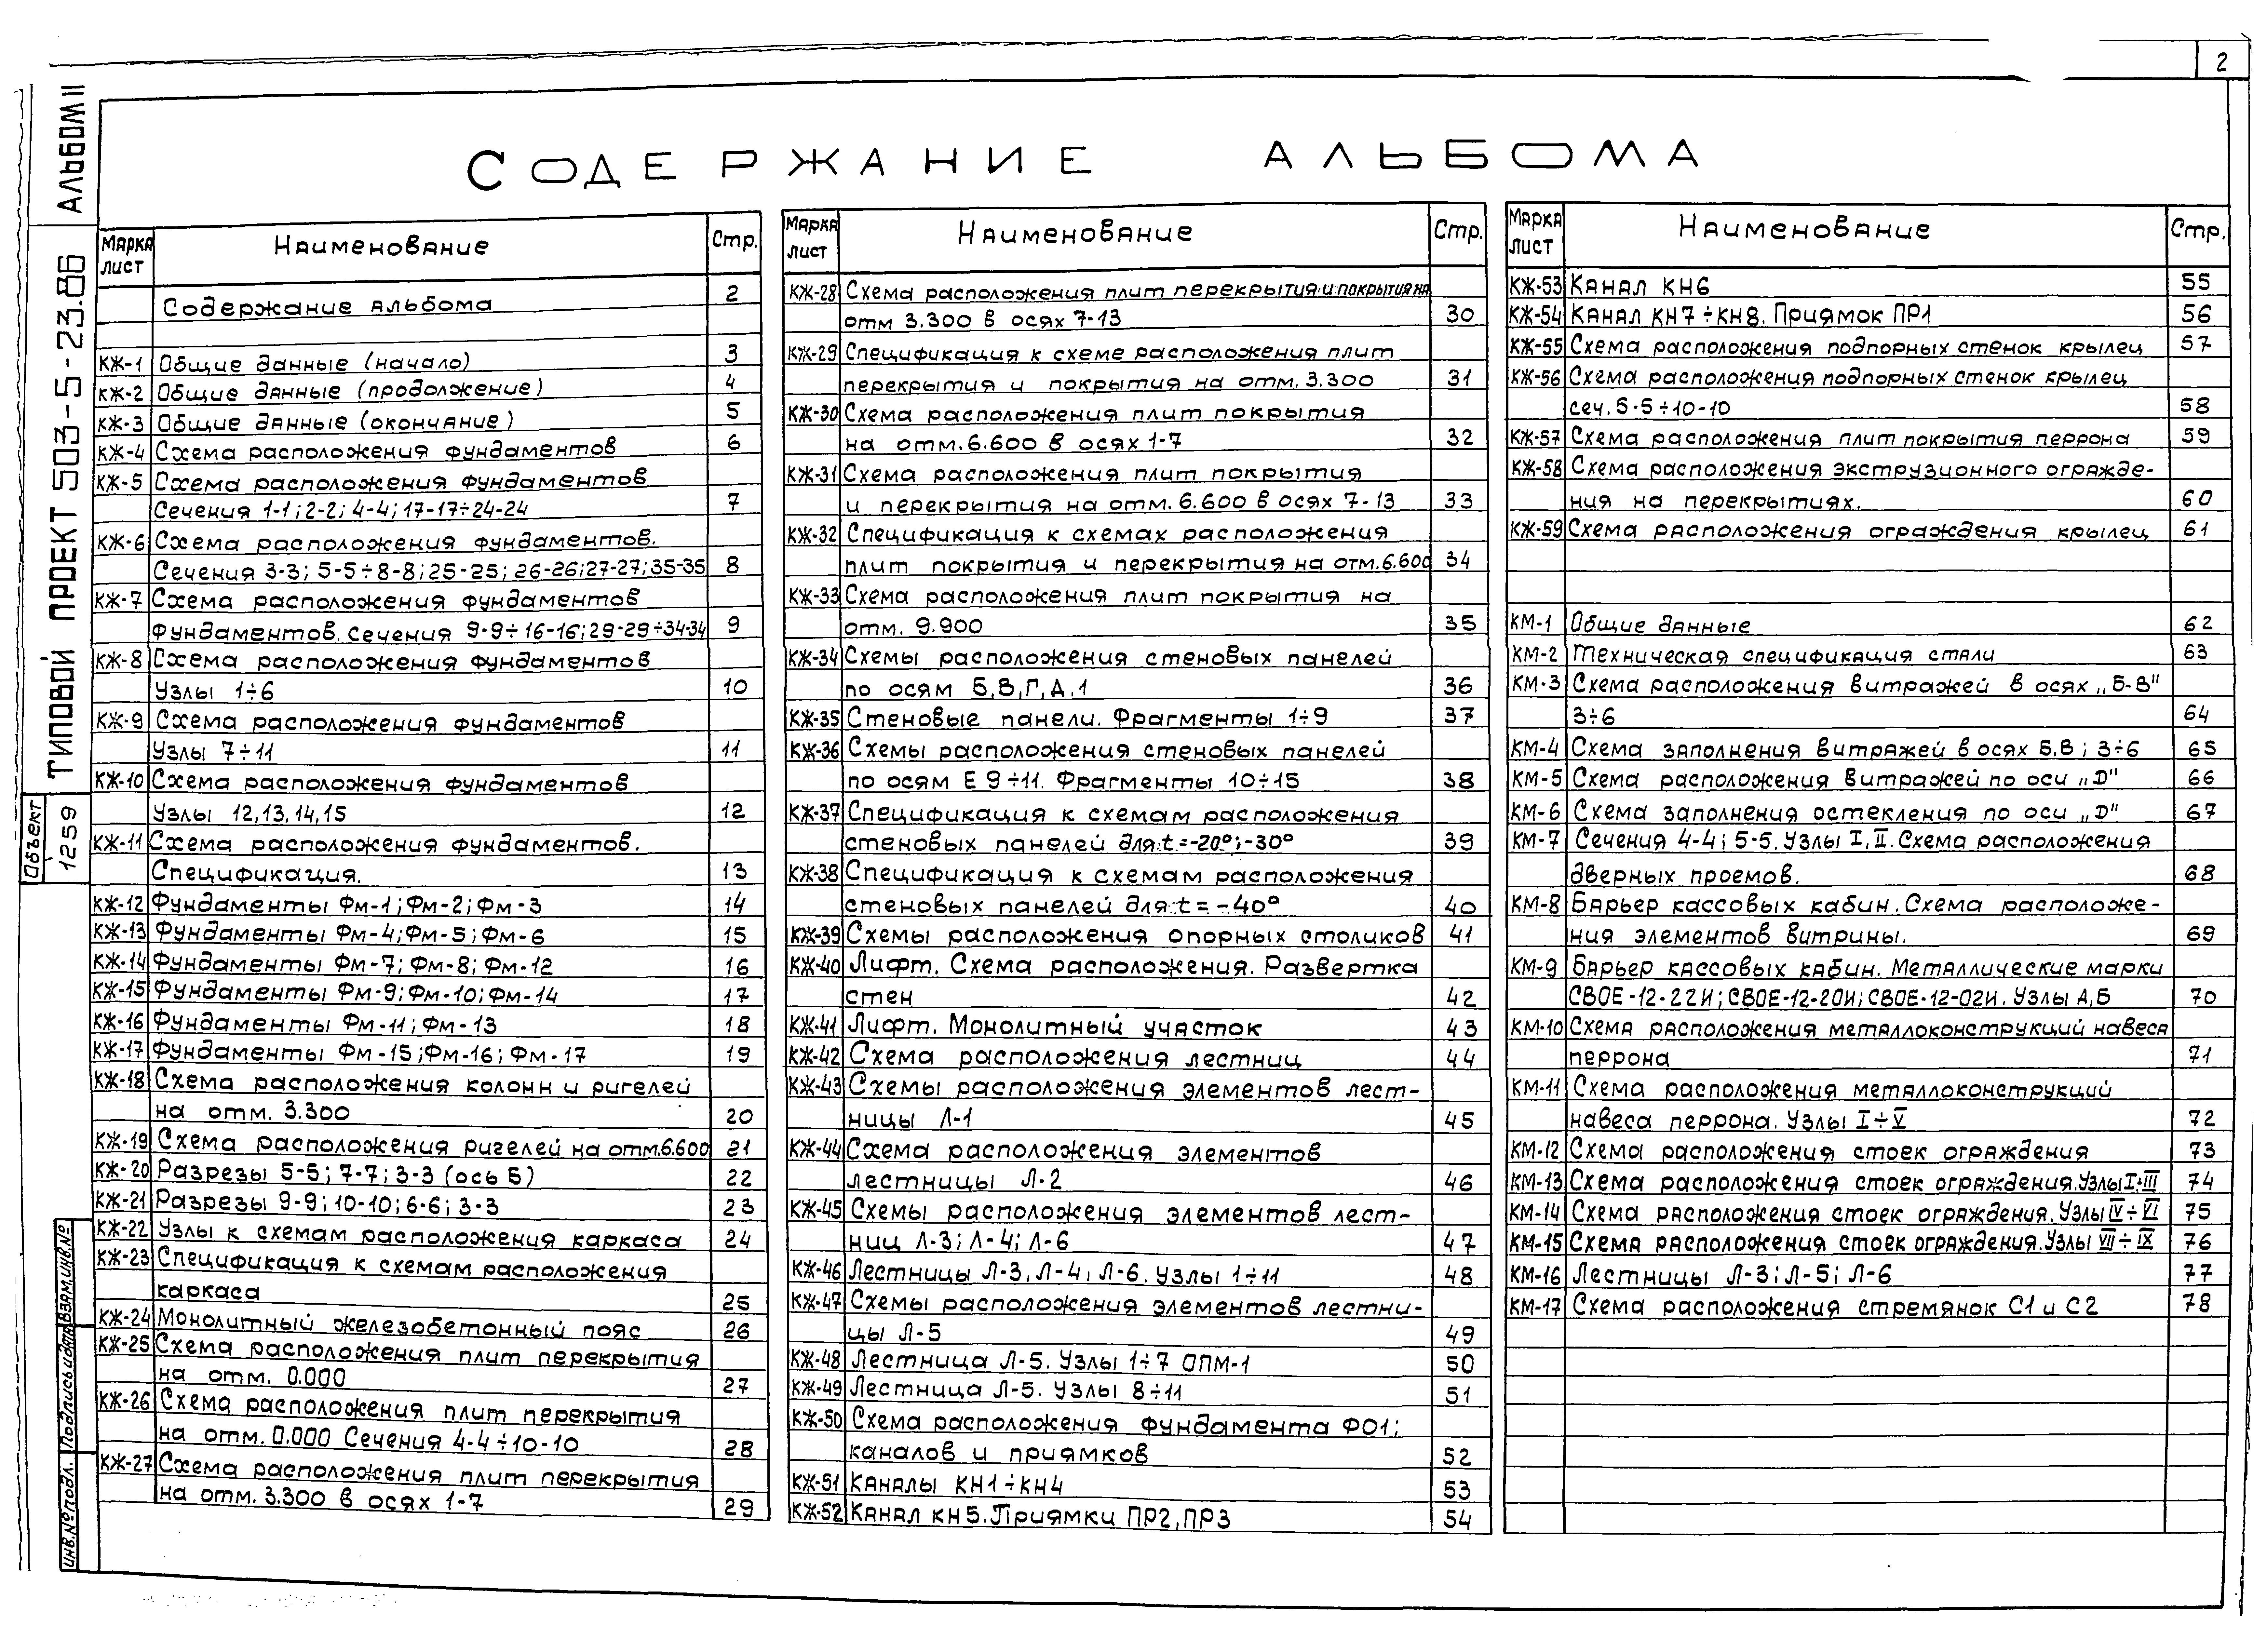 2
АЛЬБОМ II
ТИПОВОЙ ПРОЕКТ 503-5-23.86
Объект
1259
Взам.инв.№
Подпись и дата
Инв.№ подл.
СОДЕРЖАНИЕ АЛЬБОМА
Марка лист Наименование Стр.
Содержание альбома 2
КЖ-1 Общие данные (начало) 3
КЖ-2 Общие данные (продолжение) 4
КЖ-3 Общие данные (окончание) 5
КЖ-4 Схема расположения фундаментов 6
КЖ-5 Схема расположения фундаментов
Сечения 1-1; 2-2; 4-4; 17-17÷24-24 7
КЖ-6 Схема расположения фундаментов.
Сечения 3-3; 5-5÷8-8; 25-25; 26-26; 27-27; 35-35 8
КЖ-7 Схема расположения фундаментов
фундаментов. Сечения 9-9÷16-16; 29-29÷34-34 9
КЖ-8 Схема расположения фундаментов
Узлы 1÷6 10
КЖ-9 Схема расположения фундаментов
Узлы 7÷11 11
КЖ-10 Схема расположения фундаментов
Узлы 12,13,14,15 12
КЖ-11 Схема расположения фундаментов.
Спецификация. 13
КЖ-12 Фундаменты Фм-1; Фм-2; Фм-3 14
КЖ-13 Фундаменты Фм-4; Фм-5; Фм-6 15
КЖ-14 Фундаменты Фм-7; Фм-8; Фм-12 16
КЖ-15 Фундаменты Фм-9; Фм-10; Фм-14 17
КЖ-16 Фундаменты Фм-11; Фм-13 18
КЖ-17 Фундаменты Фм-15; Фм-16; Фм-17 19
КЖ-18 Схема расположения колонн и ригелей
на отм. 3.300 20
КЖ-19 Схема расположения ригелей на отм.6.600 21
КЖ-20 Разрезы 5-5; 7-7; 3-3 (ось Б) 22
КЖ-21 Разрезы 9-9; 10-10; 6-6; 3-3 23
КЖ-22 Узлы к схемам расположения каркаса 24
КЖ-23 Спецификация к схемам расположения
каркаса 25
КЖ-24 Монолитный железобетонный пояс 26
КЖ-25 Схема расположения плит перекрытия
на отм. 0.000 27
КЖ-26 Схема расположения плит перекрытия
на отм. 0.000 Сечения 4-4÷10-10 28
КЖ-27 Схема расположения плит перекрытия
на отм. 3.300 в осях 1-7 29
Марка лист Наименование Стр.
КЖ-28 Схема расположения плит перекрытия и покрытия на
отм 3.300 в осях 7-13 30
КЖ-29 Спецификация к схеме расположения плит
перекрытия и покрытия на отм. 3.300 31
КЖ-30 Схема расположения плит покрытия
на отм. 6.600 в осях 1-7 32
КЖ-31 Схема расположения плит покрытия
и перекрытия на отм. 6.600 в осях 7-13 33
КЖ-32 Спецификация к схемах расположения
плит покрытия и перекрытия на отм. 6.600 34
КЖ-33 Схема расположения плит покрытия на
отм. 9.900 35
КЖ-34 Схемы расположения стеновых панелей
по осям Б,В,Г,Д,1 36
КЖ-35 Стеновые панели. Фрагменты 1÷9 37
КЖ-36 Схемы расположения стеновых панелей
по осям Е 9÷11. Фрагменты 10÷15 38
КЖ-37 Спецификация к схемам расположения
стеновых панелей для t=-20°;-30° 39
КЖ-38 Спецификация к схемам расположения
стеновых панелей для t=-40° 40
КЖ-39 Схемы расположения опорных столиков 41
КЖ-40 Лифт. Схема расположения. Развертка
стен 42
КЖ-41 Лифт. Монолитный участок 43
КЖ-42 Схема расположения лестниц 44
КЖ-43 Схемы расположения элементов лест-
ницы Л-1 45
КЖ-44 Схема расположения элементов
лестницы Л-2 46
КЖ-45 Схемы расположения элементов лест-
ниц Л-3; Л-4; Л-6 47
КЖ-46 Лестницы Л-3, Л-4, Л-6. Узлы 1÷11 48
КЖ-47 Схемы расположения элементов лестни-
цы Л-5 49
КЖ-48 Лестница Л-5. Узлы 1÷7 ОПМ-1 50
КЖ-49 Лестница Л-5. Узлы 8÷11 51
КЖ-50 Схема расположения фундамента ФО1;
каналов и приямков 52
КЖ-51 Каналы КН1÷КН4 53
КЖ-52 Канал КН5. Приямки ПР2, ПР3 54
Марка лист Наименование Стр.
КЖ-53 Канал КН6 55
КЖ-54 Канал КН7÷КН8. Приямок ПР1 56
КЖ-55 Схема расположения подпорных стенок крылец 57
КЖ-56 Схема расположения подпорных стенок крылец
сеч. 5-5÷10-10 58
КЖ-57 Схема расположения плит покрытия перрона 59
КЖ-58 Схема расположения экструзионного огражде-
ния на перекрытиях. 60
КЖ-59 Схема расположения ограждения крылец 61
КМ-1 Общие данные 62
КМ-2 Техническая спецификация стали 63
КМ-3 Схема расположения витражей в осях „Б-В"
3÷6 64
КМ-4 Схема заполнения витражей в осях Б,В; 3÷6 65
КМ-5 Схема расположения витражей по оси „D" 66
КМ-6 Схема заполнения остекления по оси „D" 67
КМ-7 Сечения 4-4; 5-5. Узлы I, II. Схема расположения
дверных проемов. 68
КМ-8 Барьер кассовых кабин. Схема расположе-
ния элементов витрины. 69
КМ-9 Барьер кассовых кабин. Металлические марки
СВОЕ-12-22И; СВОЕ-12-20И; СВОЕ-12-02И. Узлы А,Б 70
КМ-10 Схема расположения металлоконструкций навеса
перрона 71
КМ-11 Схема расположения металлоконструкций
навеса перрона. Узлы I÷V 72
КМ-12 Схема расположения стоек ограждения 73
КМ-13 Схема расположения стоек ограждения. Узлы I÷III 74
КМ-14 Схема расположения стоек ограждения. Узлы IV÷VI 75
КМ-15 Схема расположения стоек ограждения. Узлы VII÷IX 76
КМ-16 Лестницы Л-3; Л-5; Л-6 77
КМ-17 Схема расположения стремянок С1 и С2 78